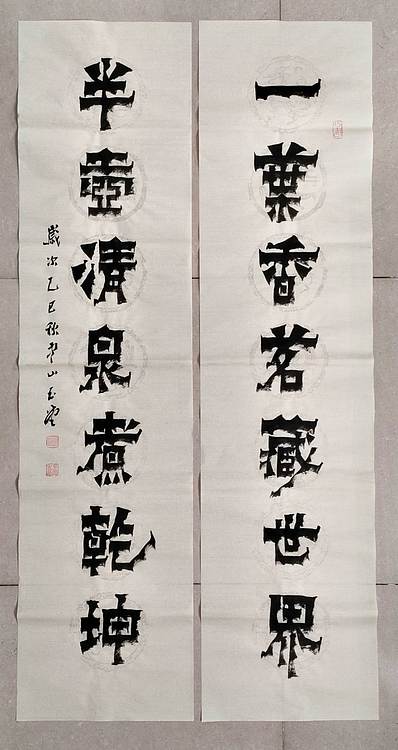 一葉香茗藏世界
半壺清泉煮乾坤
歲次乙巳秋